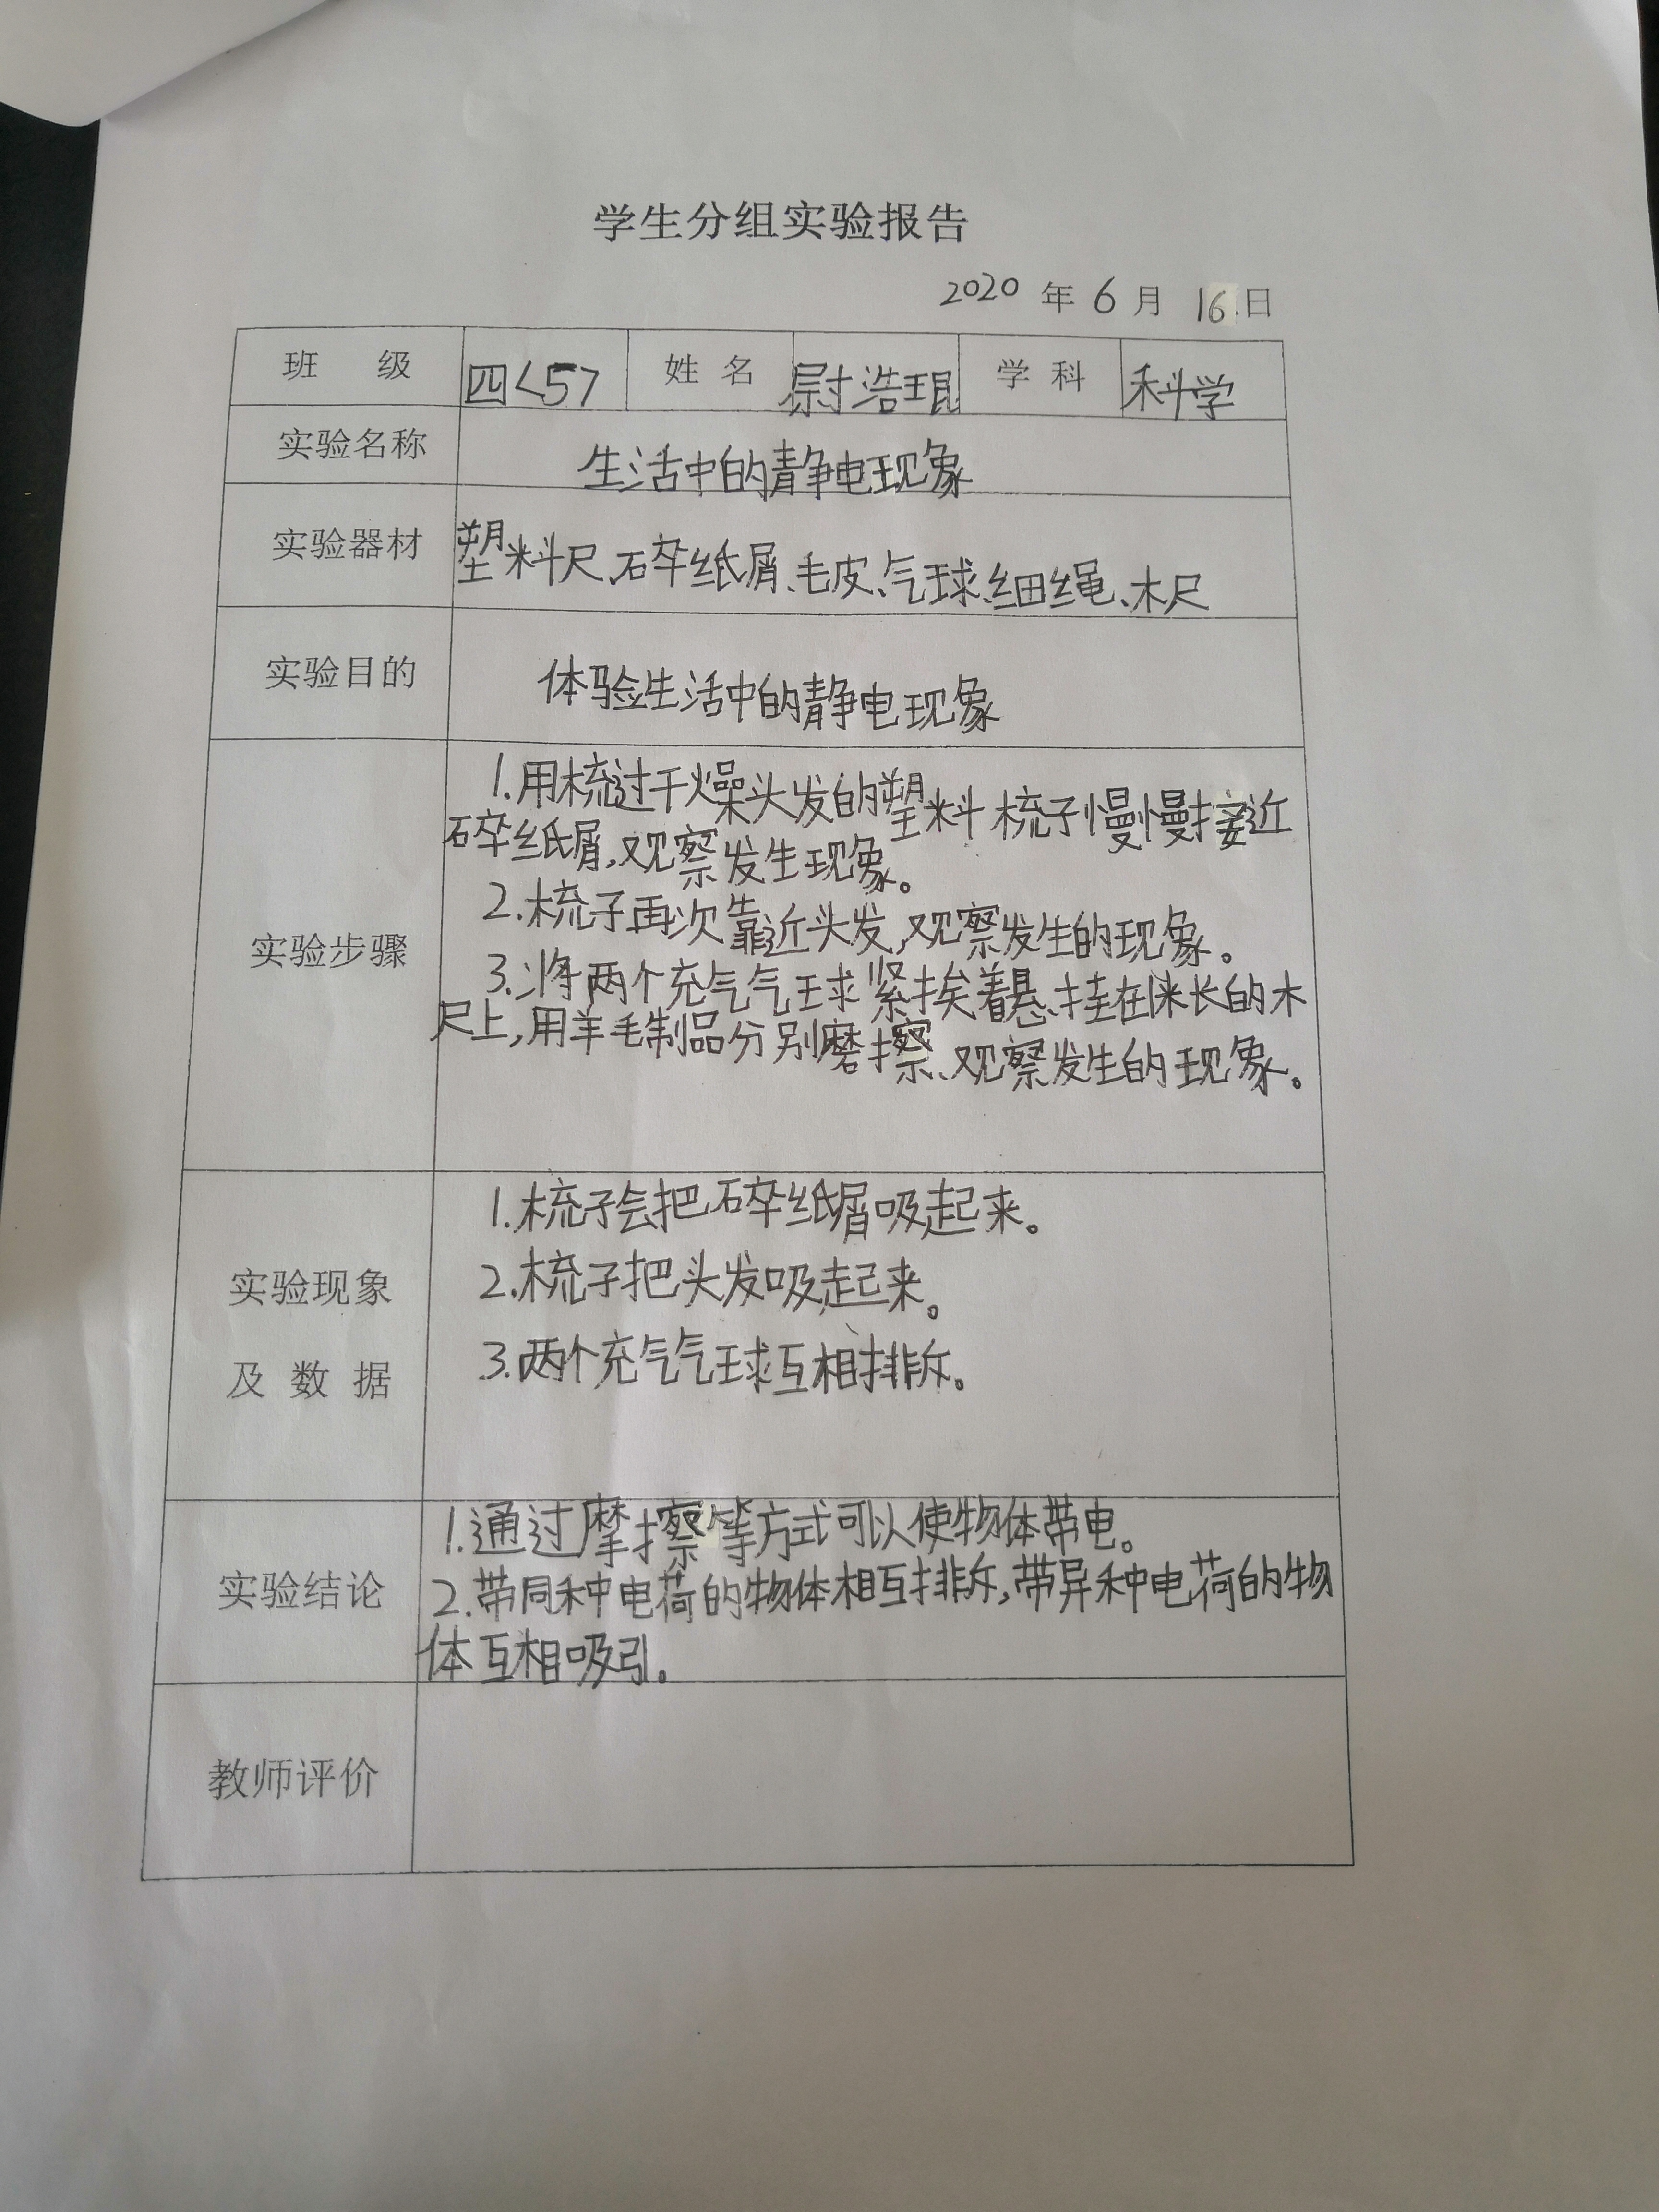 学生分组实验报告
2020 年 6 月 16 日
班 级 四<5> 姓 名 尉浩琨 学 科 科学
实验名称 生活中的静电现象
实验器材 塑料尺、碎纸屑、毛皮、气球、细绳、木尺
实验目的 体验生活中的静电现象
实验步骤
1.用梳过干燥头发的塑料梳子慢慢接近
碎纸屑,观察发生现象。
2.梳子再次靠近头发,观察发生的现象。
3.将两个充气气球紧挨着悬挂在1米长的木
尺上,用羊毛制品分别磨擦、观察发生的现象。
实验现象
及 数 据
1.梳子会把碎纸屑吸起来。
2.梳子把头发吸起来。
3.两个充气气球互相排斥。
实验结论
1.通过摩擦等方式可以使物体带电。
2.带同种电荷的物体相互排斥,带异种电荷的物
体互相吸引。
教师评价